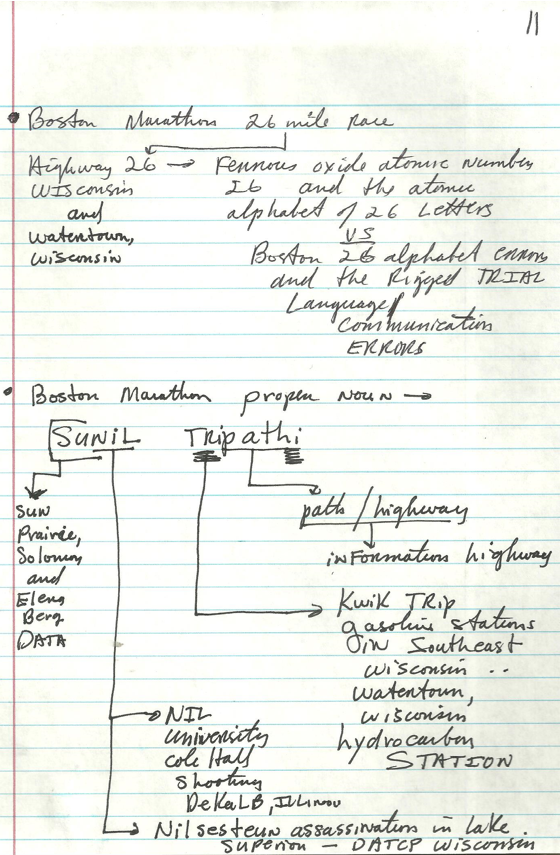 11
• Boston Marathon 26 mile race
Highway 26 → Ferrous oxide atomic number
Wisconsin 26 and the atomic
and alphabet of 26 Letters
Watertown, VS
Wisconsin Boston 26 alphabet errors
and the Rigged TRIAL
Language/
Communication
ERRORS
• Boston Marathon proper NOUN →
SUNIL TRipathi
path / highway
information highway
SUN
Prairie,
Solomon
and
Elena
Berg
DATA
KWIK TRip
gasoline stations
in Southeast
Wisconsin ..
Watertown,
Wisconsin
hydrocarbon
STATION
NIL
University
Cole Hall
Shooting
DeKalb, Illinois
Nilsesteun assassination in Lake
Superior – DATCP Wisconsin